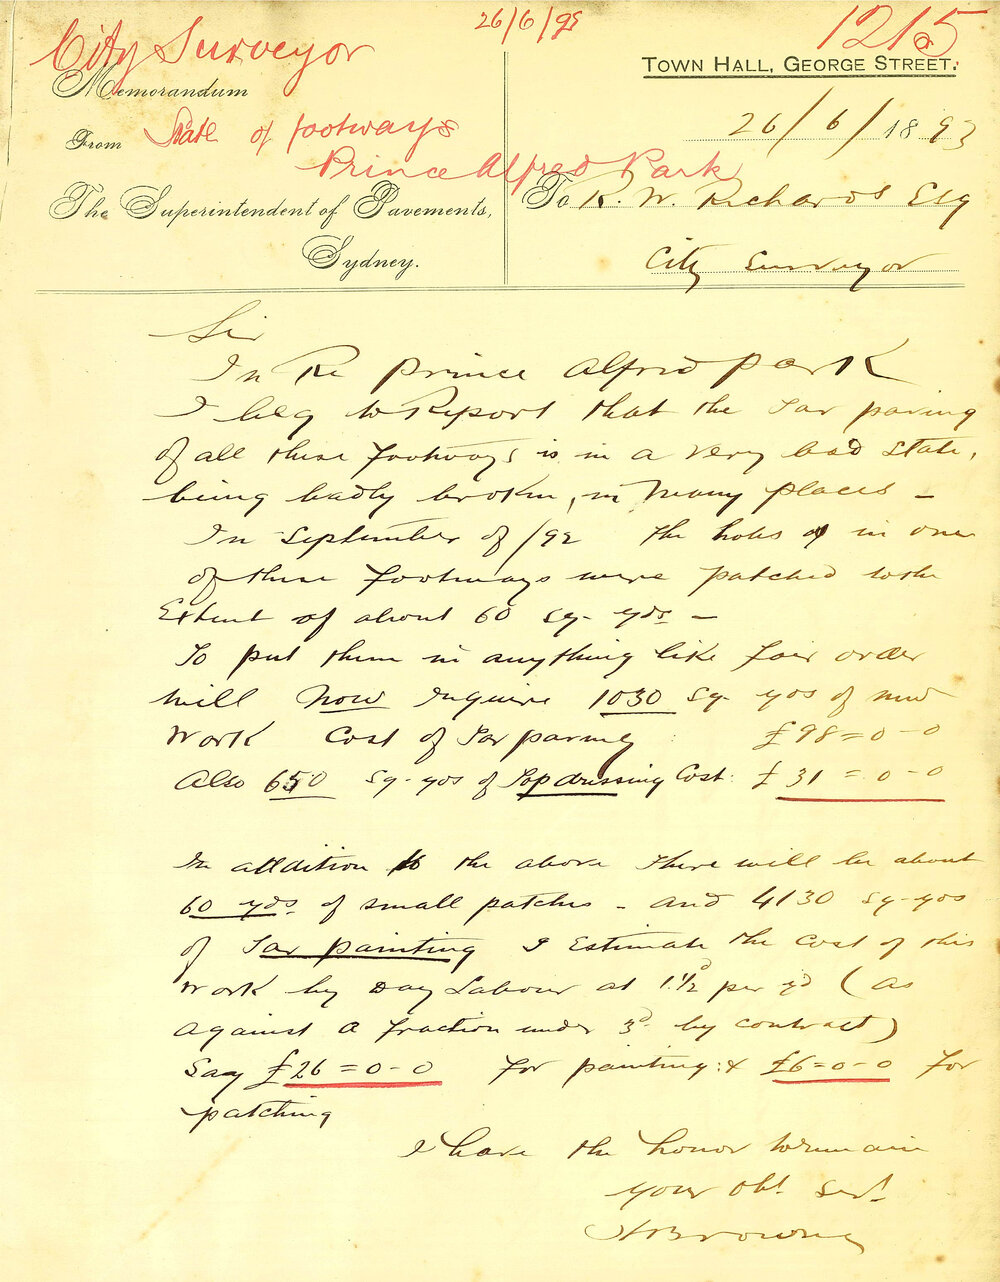 City Surveyor
26/6/93
1215
Memorandum
TOWN HALL, GEORGE STREET.
From
State of footways
Prince Alfred Park
26/6/1893
The Superintendent of Pavements,
Sydney.
To R. W. Richards Esq
City Surveyor
Sir
In Re Prince Alfred Park
I beg to Report that the Tar paving
of all these footways is in a very bad state,
being badly broken, in many places –
In September of /92 the holes in one
of these footways were patched to the
Extent of about 60 sq. yds –
To put them in anything like fair order
will Now require 1030 sq yds of new
work Cost of Tar paving : £98=0-0
Also 650 sq-yds of Top dressing Cost: £31=0-0
In addition to the above there will be about
60 yds. of small patches – and 4130 sq-yds
of Tar painting I Estimate the cost of this
work by Day Labour at 1½d per yd (as
against a fraction under 3d. by contract)
Say £26=0-0 for painting: & £6=0-0 for
patching
I have the honor to remain
your Obt. Servt.
Browne